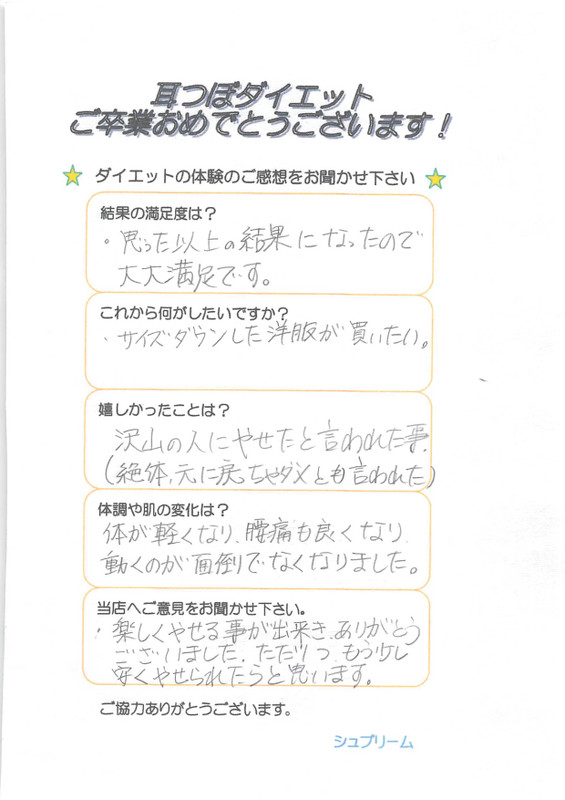 耳つぼダイエット
ご卒業おめでとうございます!
ダイエットの体験のご感想をお聞かせ下さい
結果の満足度は?
・思った以上の結果になったので
大大満足です。
これから何がしたいですか?
・サイズダウンした洋服が買いたい。
嬉しかったことは?
沢山の人にやせたと言われた事.
(絶体、元に戻っちゃダメとも言われた)
体調や肌の変化は?
体が軽くなり、腰痛も良くなり
動くのが面倒でなくなりました。
当店へご意見をお聞かせ下さい。
・楽しくやせる事が出来き、ありがとう
ございました、ただ1つ、もう少し
安くやせられたらと思います。
ご協力ありがとうございます。
シュプリーム